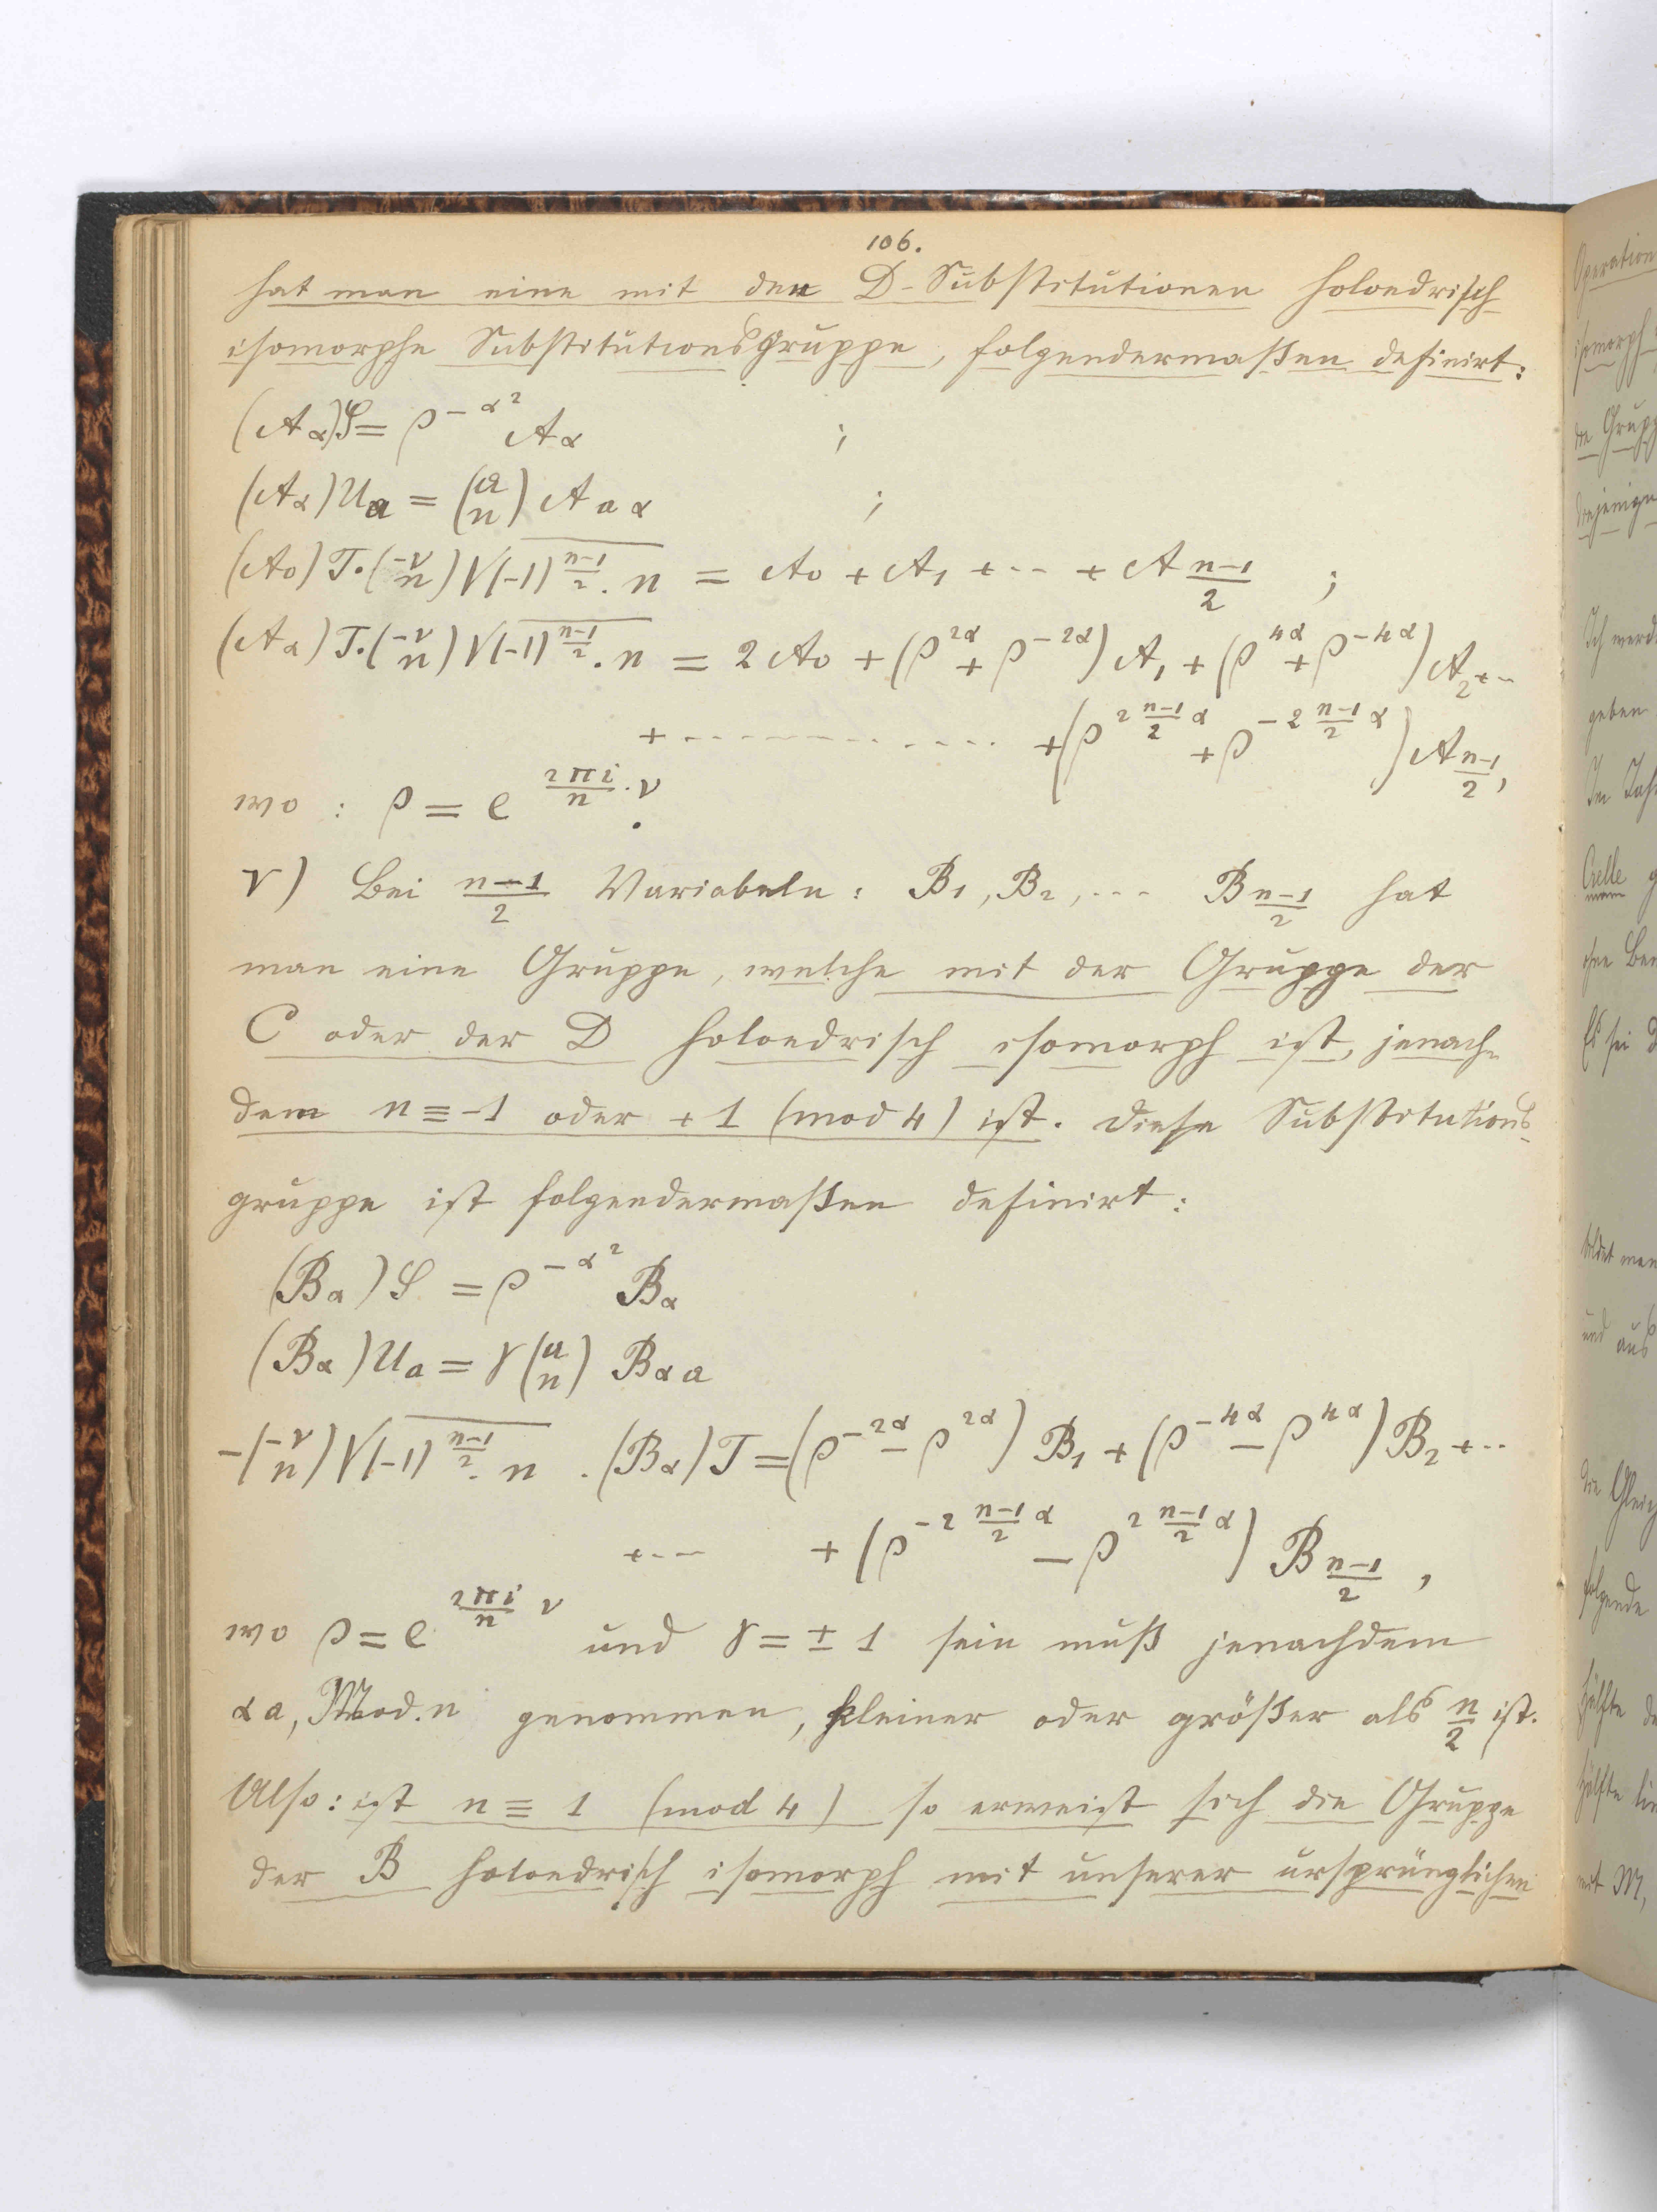 106.
hat man eine mit den D-Substitutionen holoedrisch
isomorphe Substitutionsgruppe, folgendermaßen definirt:
(A_α)S = ρ^{-α²} A_α ;
(A_α)U_a = (a/n) A_{aα} ;
(A_0)T·(-ν/n)√((-1)^{(n-1)/2}·n) = A_0 + A_1 + ··· + A_{(n-1)/2} ;
(A_α)T·(-ν/n)√((-1)^{(n-1)/2}·n) = 2A_0 + (ρ^{2α} + ρ^{-2α})A_1 + (ρ^{4α} + ρ^{-4α})A_2 + ··
+ ············ + (ρ^{2(n-1)/2 α} + ρ^{-2(n-1)/2 α})A_{(n-1)/2},
wo : ρ = e^{2πi/n · ν}.
V) Bei (n-1)/2 Variabeln: B_1, B_2, ··· B_{(n-1)/2} hat
man eine Gruppe, welche mit der Gruppe der
C oder der D holoedrisch isomorph ist, jenach-
dem n ≡ -1 oder +1 (mod 4) ist. Diese Substitutions-
gruppe ist folgendermaßen definirt:
(B_α)S = ρ^{-α²} B_α
(B_α)U_a = γ(a/n) B_{αa}
-(-ν/n)√((-1)^{(n-1)/2}·n) · (B_α)T = (ρ^{-2α} - ρ^{2α})B_1 + (ρ^{-4α} - ρ^{4α})B_2 + ··
+ ··· + (ρ^{-2(n-1)/2 α} - ρ^{2(n-1)/2 α})B_{(n-1)/2},
wo ρ = e^{2πi/n ν} und γ = ± 1 sein muß jenachdem
αa, Mod. n genommen, kleiner oder größer als n/2 ist.
Also: ist n ≡ 1 (mod 4) so erweist sich die Gruppe
der B holoedrisch isomorph mit unserer ursprünglichen
Operation
isomorph
die Grupp
diejenige
Ich werd
geben
Im Jah
Crelle
Es sei
bildet man
und aus
die Gleich
folgende
Hälfte
Hälfte
mit M,